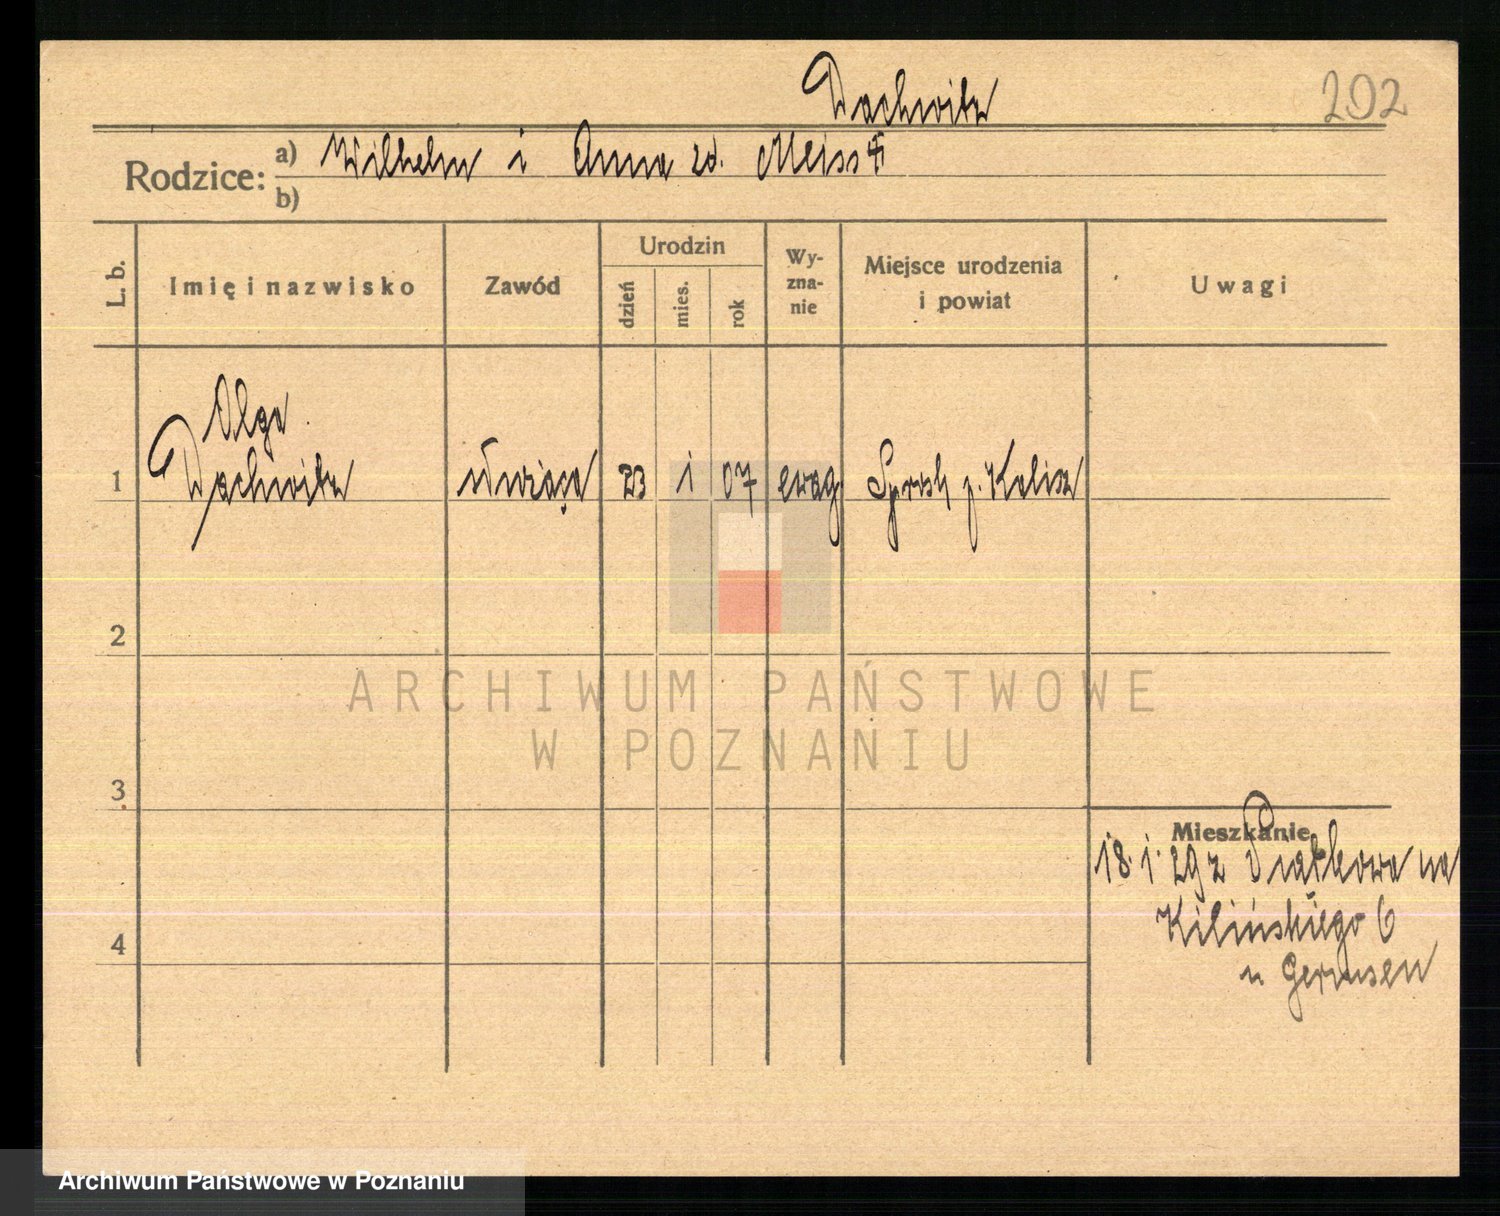 Dachwitz
202
Rodzice: a) Wilhelm i Anna zd. Meiss
b)
L. b. Imię i nazwisko Zawód Urodzin dzień mies. rok Wyznanie Miejsce urodzenia i powiat Uwagi
Olga
1 Dachwitz służąca 23 1 07 ewag p. Kalisz
2
ARCHIWUM PAŃSTWOWE
W POZNANIU
3
Mieszkanie
18. 1. 29 z Piątkowa na
Kilińskiego 6
4
u
Archiwum Państwowe w Poznaniu